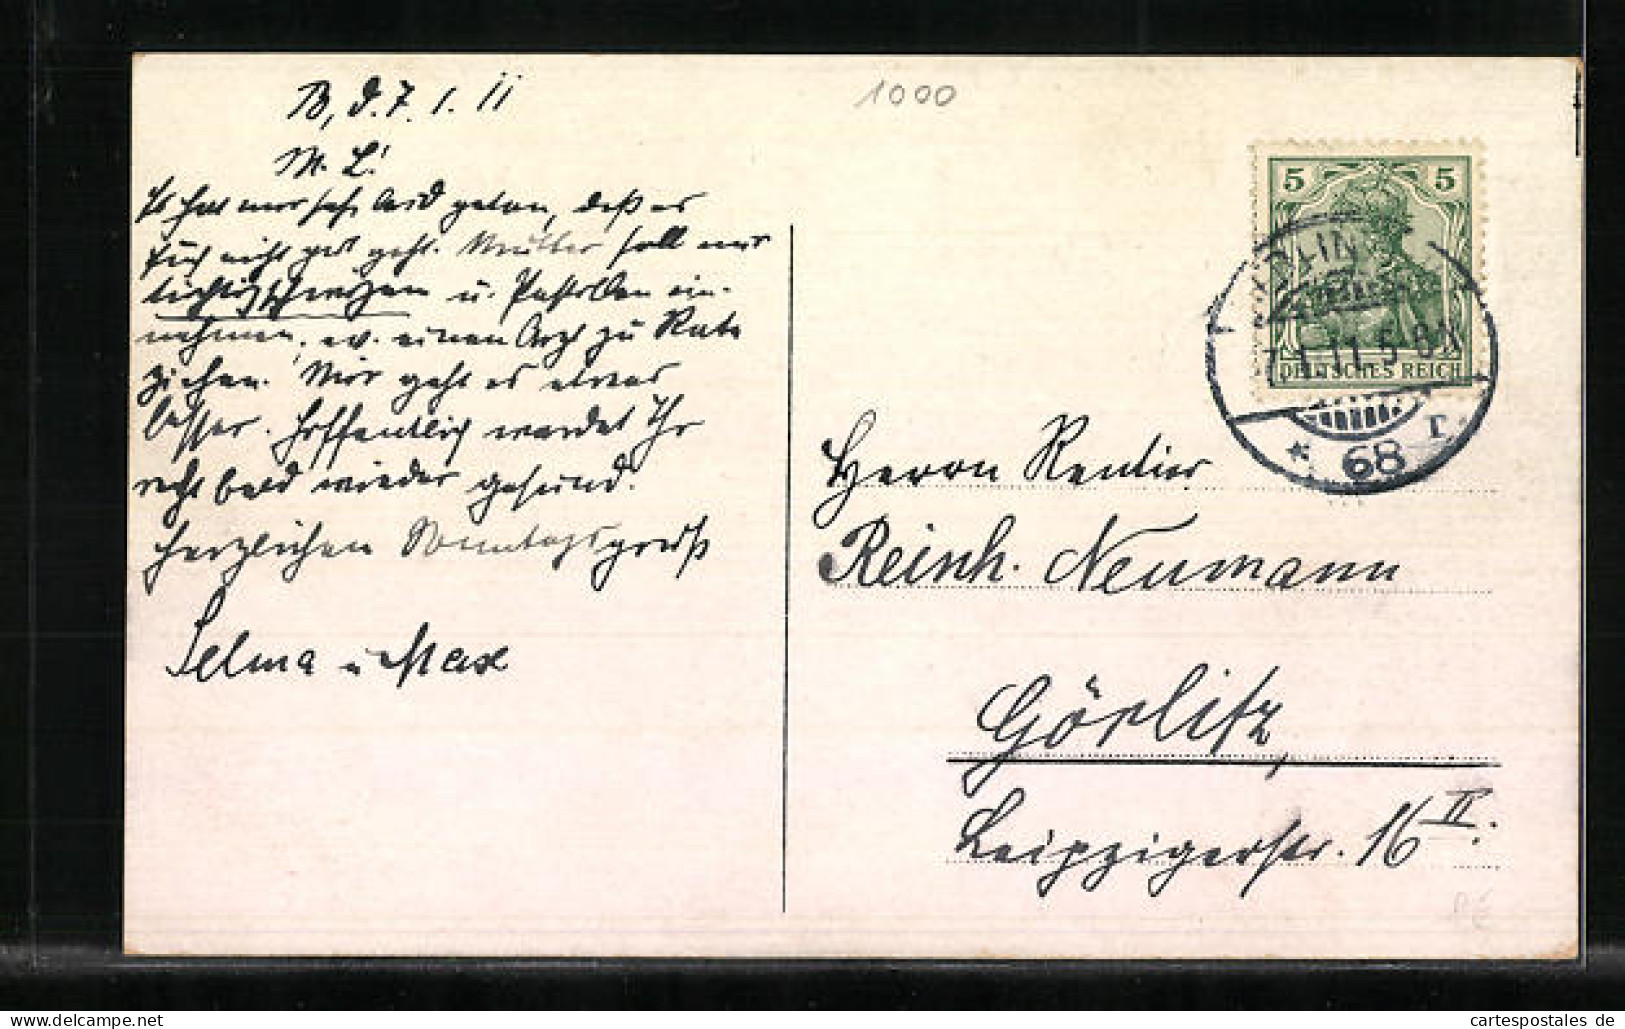 B, d. 7. 1. 11
M. L!
Es hat uns sehr leid getan, daß es
Euch nicht gut geht. Mutter soll nur
tüchtig schwitzen u. Pastillen ein-
nehmen, ev. einen Arzt zu Rate
ziehen. Mir geht es etwas
besser. Hoffentlich werdet Ihr
recht bald wieder gesund.
Herzlichen Sonntagsgruß
Selma u Max
1000
5 5
DEUTSCHES REICH
BERLIN
7.1.11.5-6N
* 68 r.
Herrn Rentier
Reinh. Neumann
Görlitz,
Leipzigerstr. 16 II.
PE
106643
cartespostales de